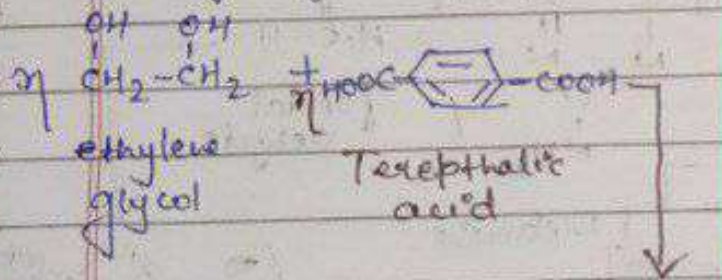 OH OH
n CH2-CH2 + n HOOC-COOH
ethylene
glycol
Terepthalic
acid